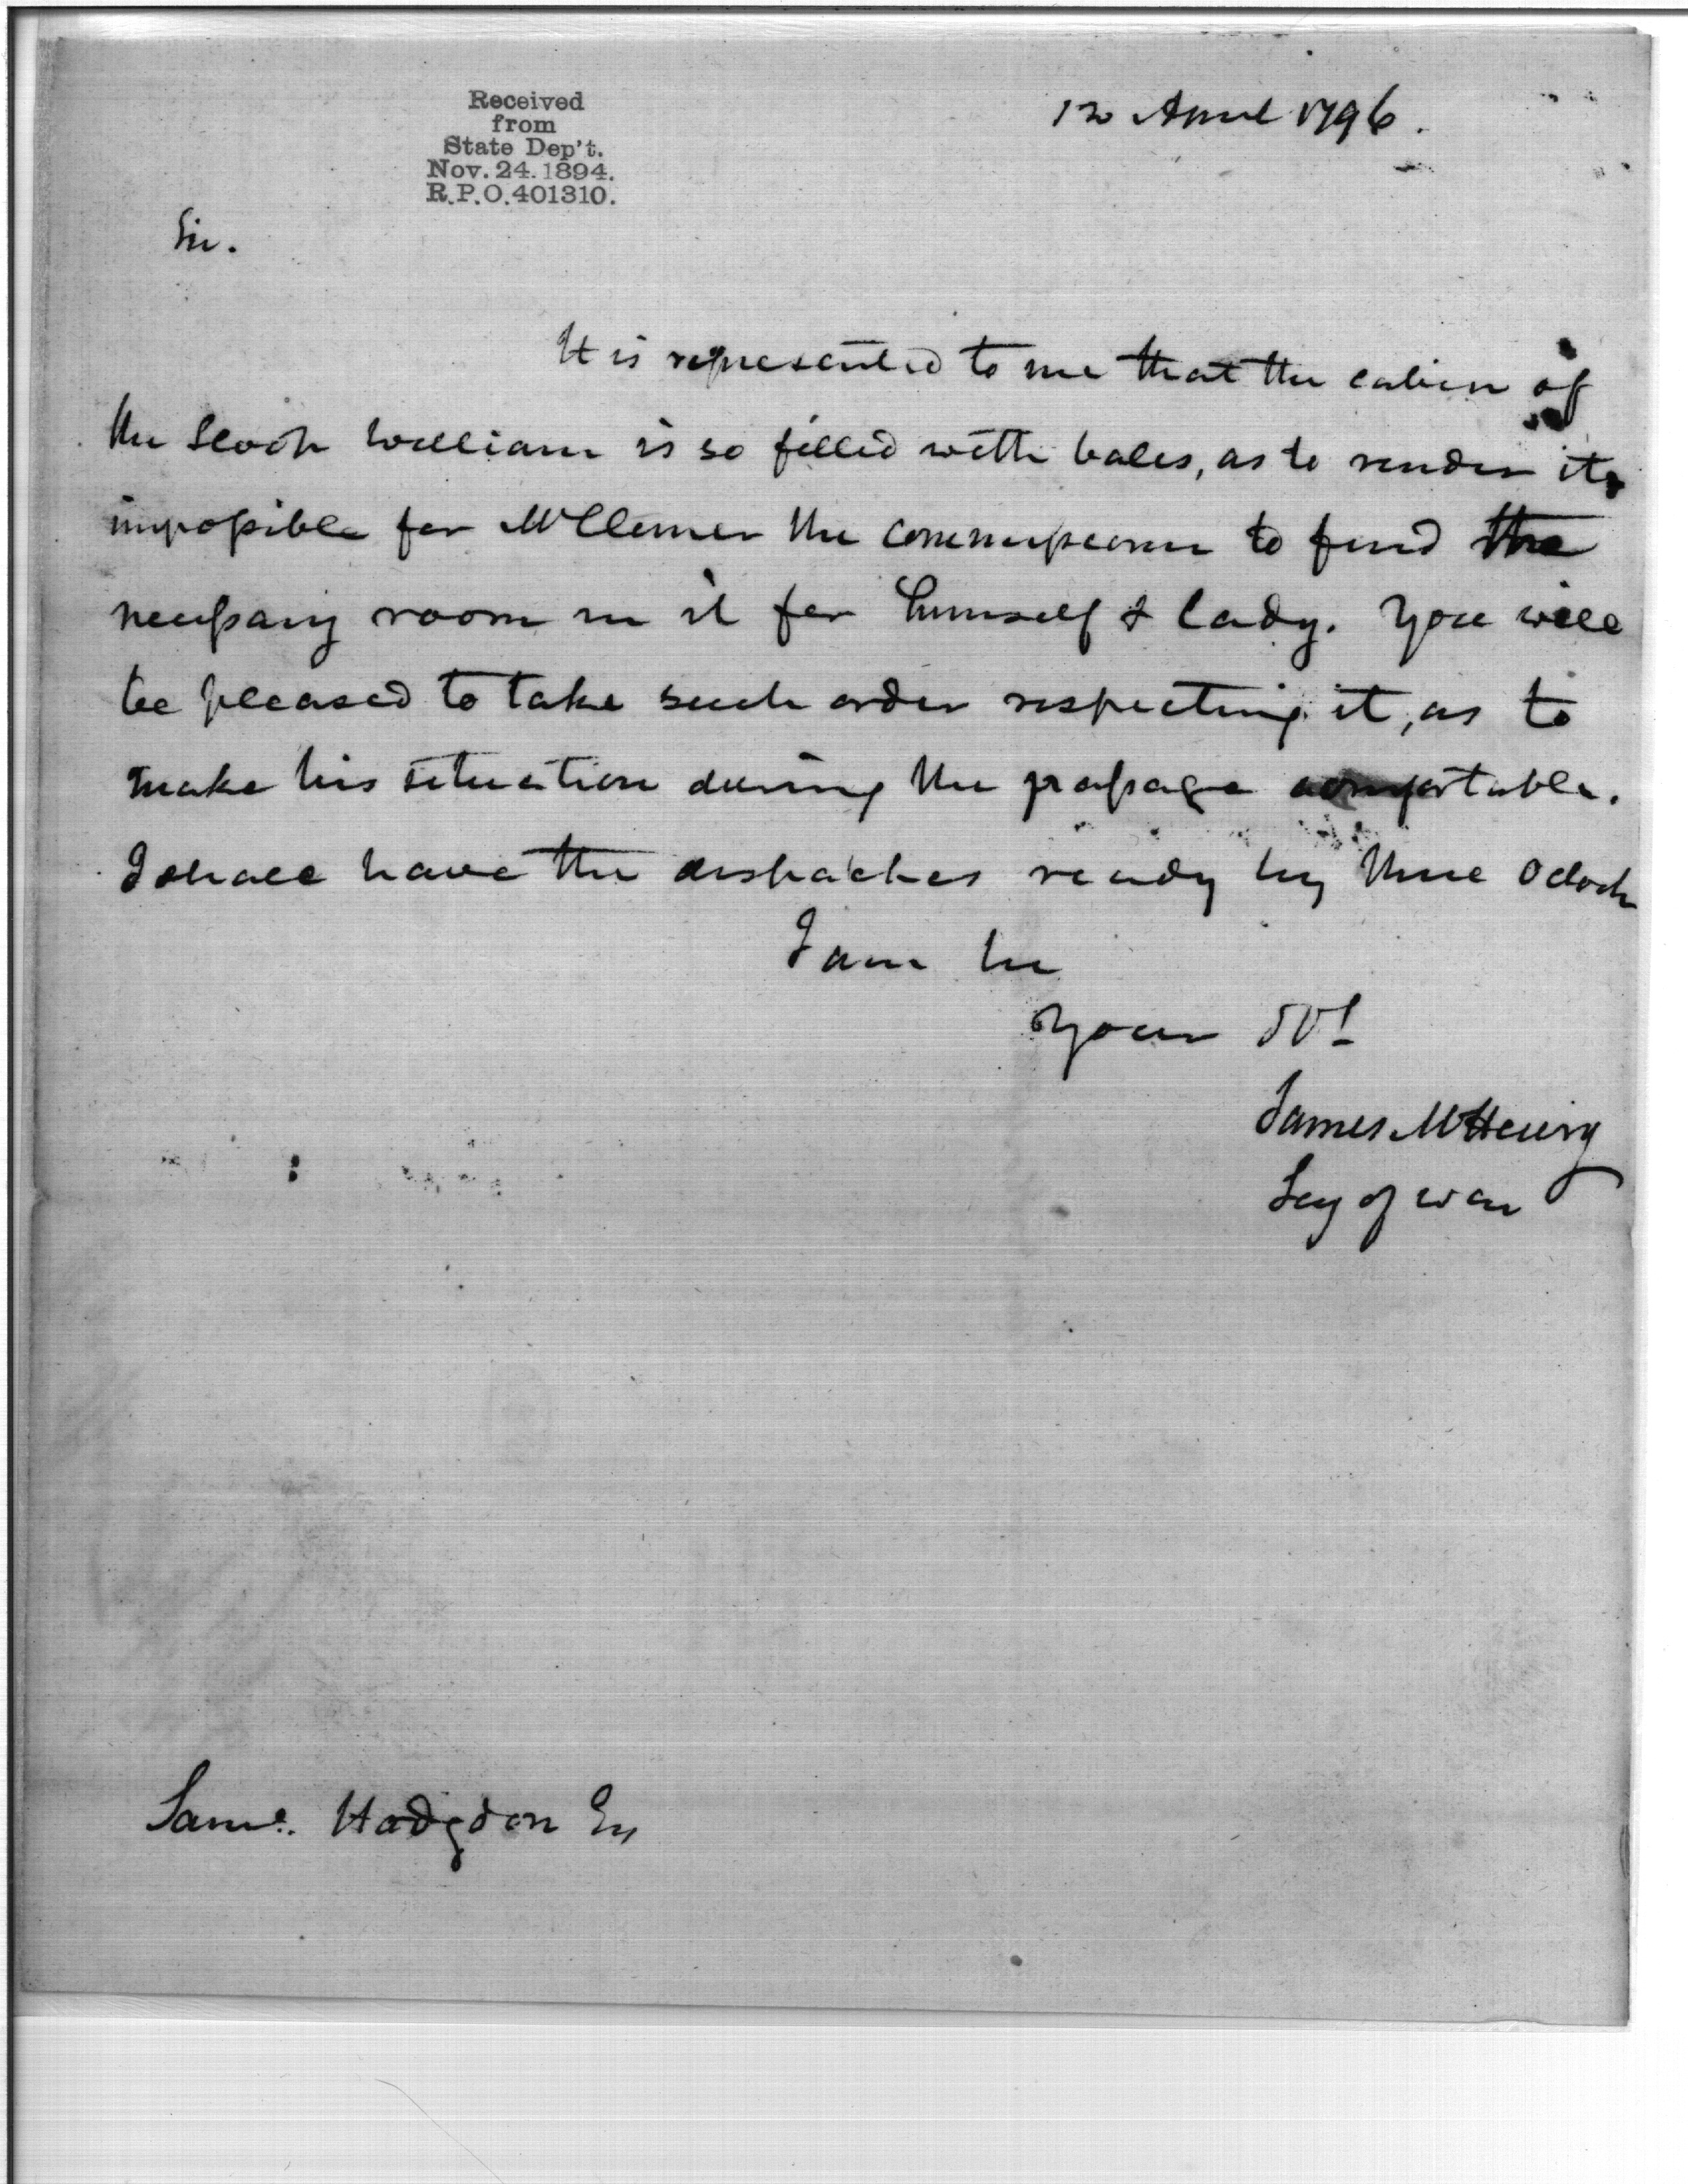 Received
from
State Dep't.
Nov. 24. 1894.
R.P.O. 401310.
12 April 1796.
Sir.
It is represented to me that the cabin of
the Sloop William is so filled with bales, as to render it
impossible for the commissioner to find the
necessary room in it for himself & lady. You will
be pleased to take such order respecting it, as to
make his situation during the passage comfortable.
I shall have the dispatches ready by three Oclock
I am Sir
Your St
James McHenry
Secy of war
Saml. Hodgdon Esq